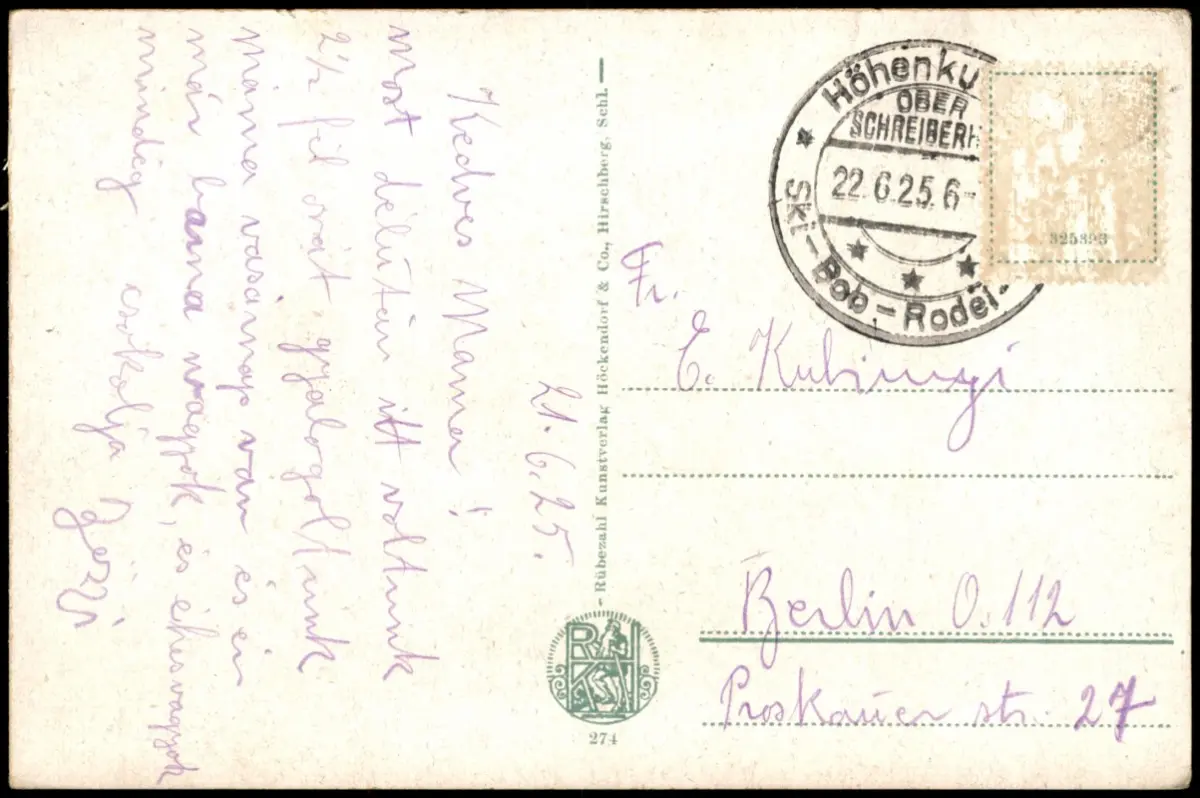 21. 6. 25.
Kedves Mama!
Most délután itt voltunk
2½ fél órát gyalogoltunk
Máma vasárnap van és én
már barna vagyok, és éhes vagyok
mindég csókolja Józsi
- Rübezahl Kunstverlag Höckendorf & Co., Hirschberg. Schl. -
RKH
274
Höhenku
OBER
SCHREIBERH
22.6.25.6-
Ski-Bob-Rodel-
325893
Fr.
E. Kubinyi
Berlin O. 112
Proskauer str. 27